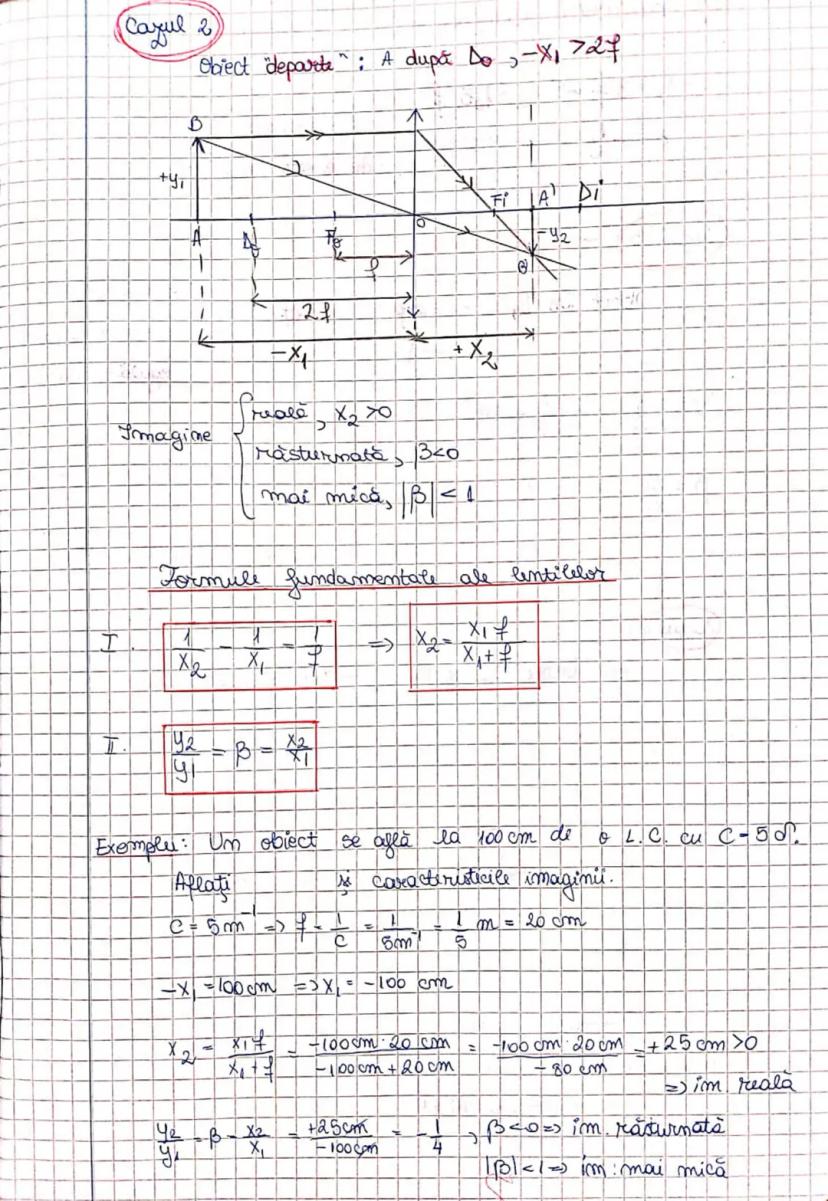 Cazul 2
Obiect "departe": A după Do, -x₁ > 2f
B
+y₁
Fi A' Di
A Do Fo O -y₂
B'
f
2f
-x₁ +x₂
Imagine { reală, x₂ > 0
răsturnată, β<0
mai mică, |β| < 1
Formule fundamentale ale lentilelor
I. 1/x₂ - 1/x₁ = 1/f => x₂ = x₁f/(x₁+f)
II. y₂/y₁ = β = x₂/x₁
Exemplu: Un obiect se află la 100 cm de o L.C. cu C = 5 δ.
Aflați și caracteristicile imaginii.
C = 5m⁻¹ => f = 1/C = 1/5m⁻¹ = 1/5 m = 20 cm
-x₁ = 100 cm => x₁ = -100 cm
x₂ = x₁f/(x₁+f) = (-100cm · 20 cm)/(-100cm + 20cm) = (-100 cm · 20cm)/(-80 cm) = +25 cm > 0
=> im. reală
y₂/y₁ = β = x₂/x₁ = +25cm/-100cm = -1/4, β < 0 => im. răsturnată
|β| < 1 => im. mai mică